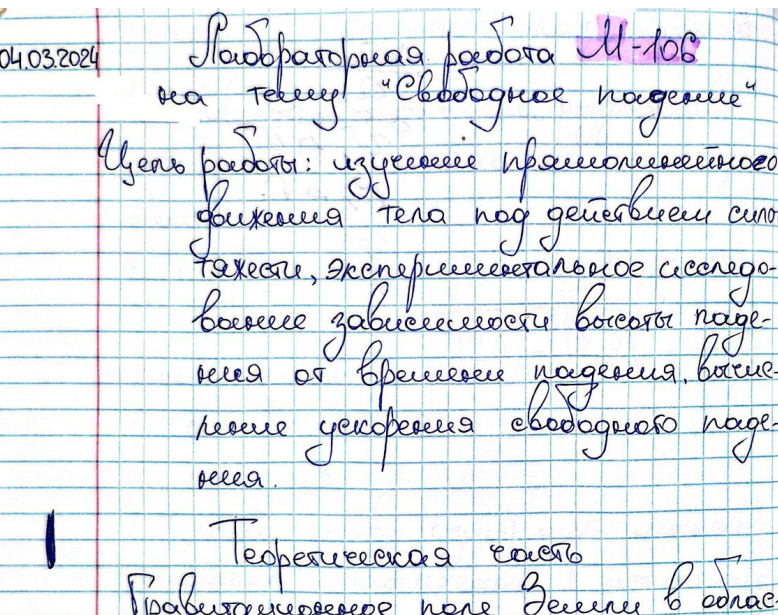 04.03.2024
Лабораторная работа М-106
на тему "Свободное падение"
Цель работы: изучение прямолинейного
движения тела под действием силы
тяжести, экспериментальное исследо-
вание зависимости высоты паде-
ния от времени падения, вычис-
ление ускорения свободного паде-
ния.
Теоретическая часть
Гравитационное поле Земли в облас-